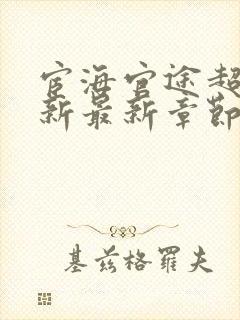 宦海官途超
新最新章节
基兹格罗夫